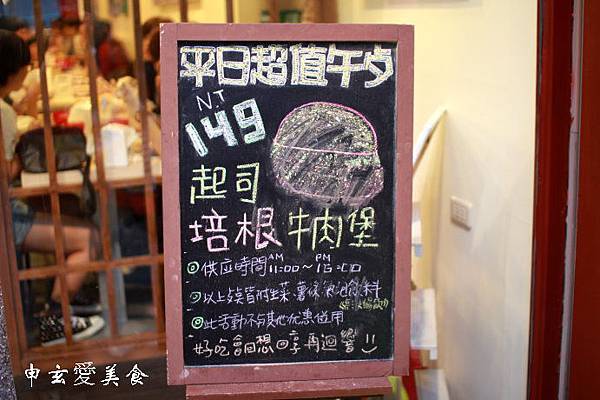 平日超值午夕
N.T
149
起司
培根牛肉堡
供应時間 AM 11:00~ PM 15:00
以上餐皆附生菜、薯條
此活動不与其他优惠併用
好吃會回想 回享再迴響
申玄愛美食